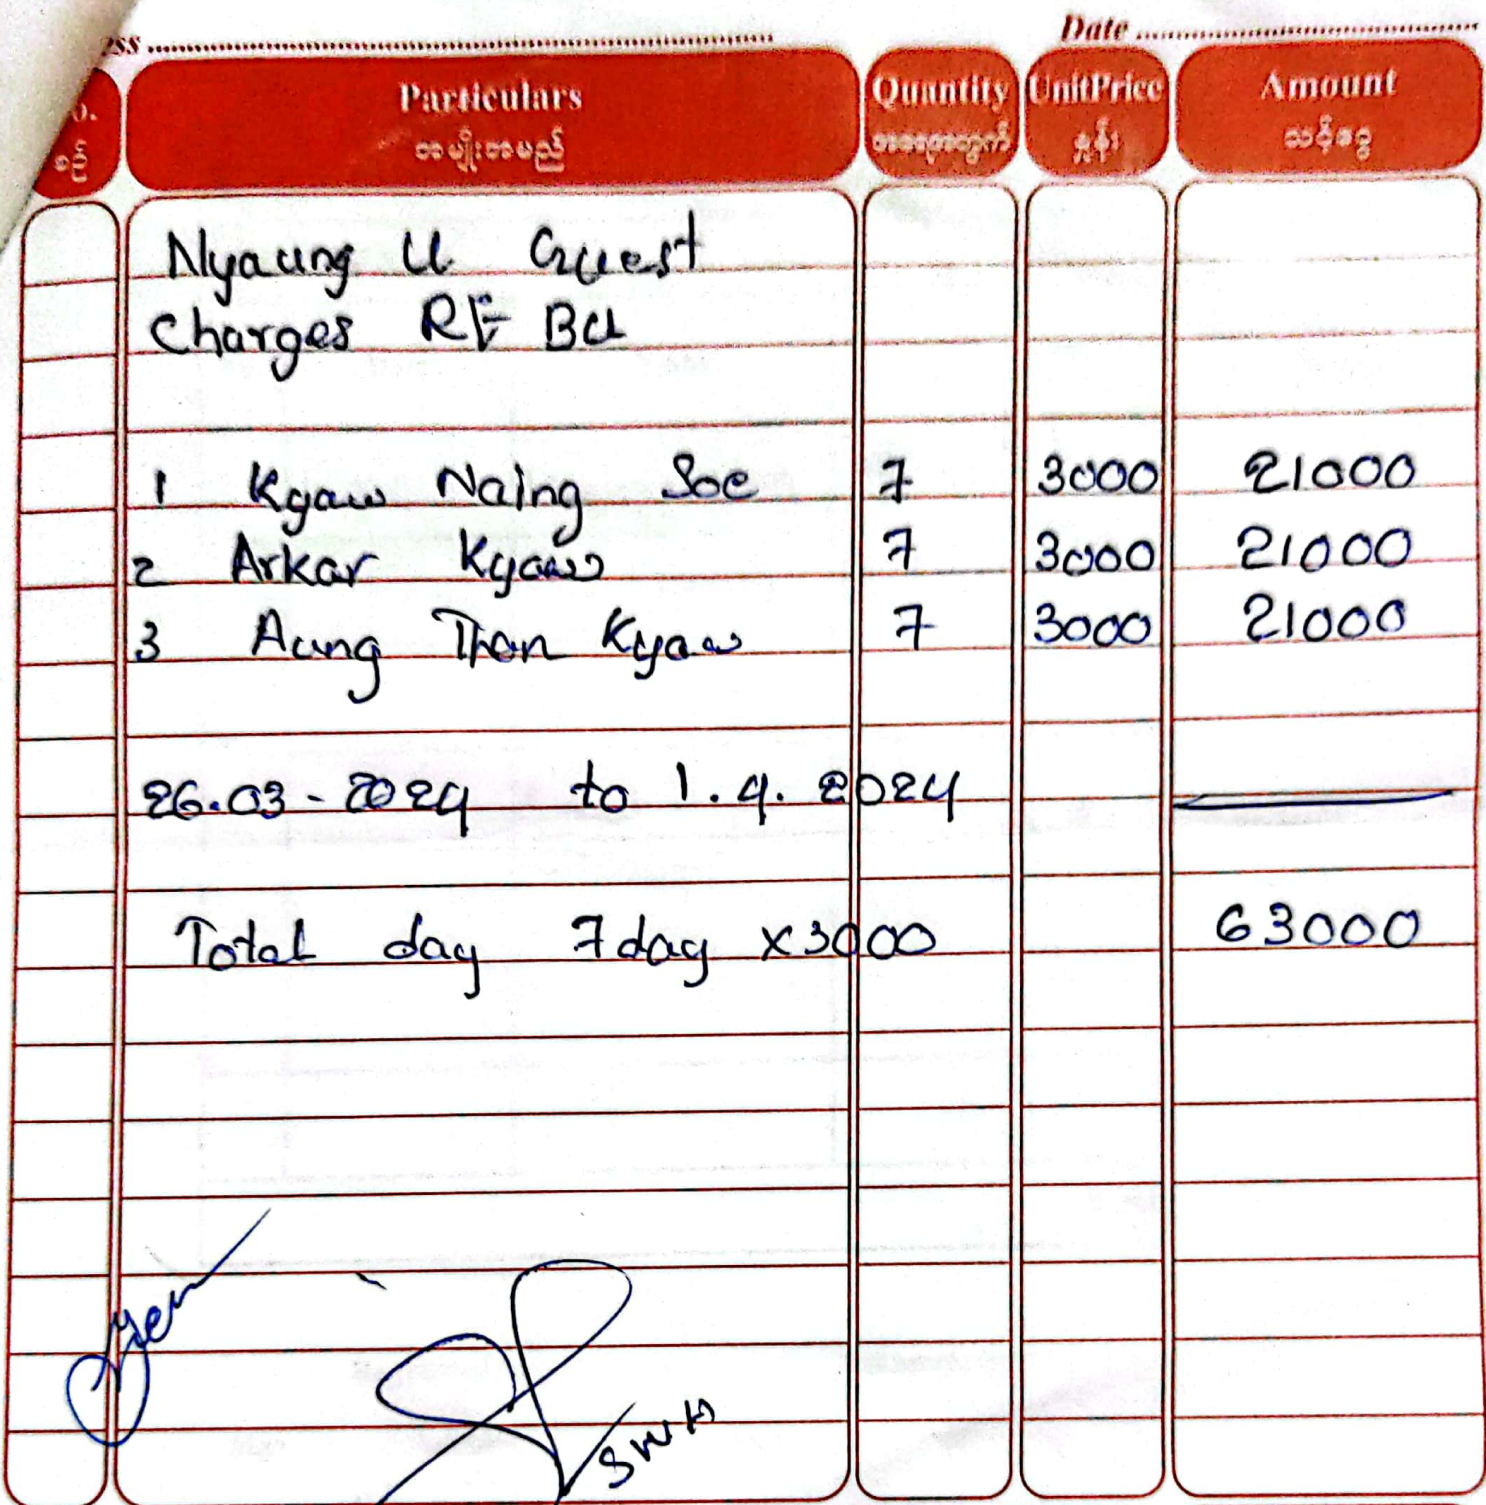 ess ........ Date ........
Particulars Quantity UnitPrice Amount
စဉ် အမျိုးအမည် အရေအတွက် နှုန်း သင့်ငွေ
Nyaung U Guest
Charges RE BU
1 Kyaw Naing Soe 7 3000 21000
2 Arkar Kyaw 7 3000 21000
3 Aung Than Kyaw 7 3000 21000
26.03-2024 to 1.4.2024
Total day 7day x3000 63000